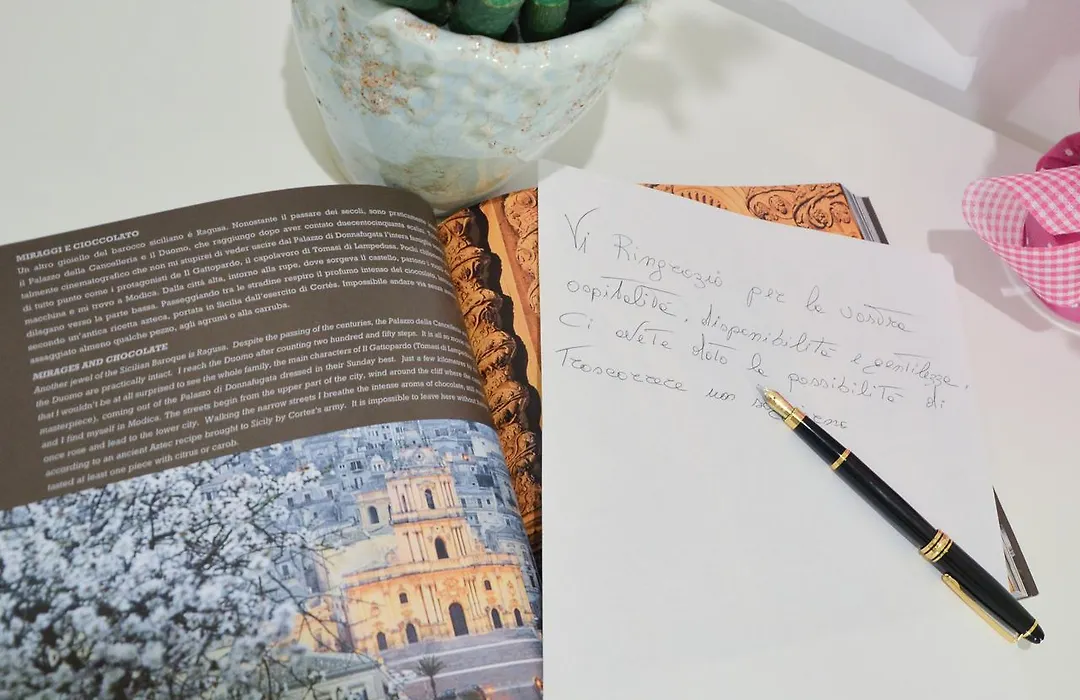 MIRAGGI E CIOCCOLATO
Un altro gioiello del barocco siciliano é Ragusa. Nonostante il passare dei secoli, sono praticamente
il Palazzo della Cancelleria e il Duomo, che raggiungo dopo aver contato duecentocinquanta scalini
talmente cinematografico che non mi stupirei di veder uscire dal Palazzo di Donnafugata l'intera famiglia
di tutto punto come i protagonisti de Il Gattopardo, il capolavoro di Tomasi di Lampedusa. Pochi
macchina e mi trovo a Modica. Dalla città alta, intorno alla rupe, dove sorgeva il castello, partono i
dilagano verso la parte bassa. Passeggiando tra le stradine respiro il profumo intenso del cioccolato,
secondo un'antica ricetta azteca, portata in Sicilia dall'esercito di Cortés. Impossibile andare via senza
assaggiato almeno qualche pezzo, agli agrumi o alla carruba.
MIRAGES AND CHOCOLATE
Another jewel of the Sicilian Baroque is Ragusa. Despite the passing of the centuries, the Palazzo della Cancelleria
the Duomo are practically intact. I reach the Duomo after counting two hundred and fifty steps. It is all so
that I wouldn't be at all surprised to see the whole family, the main characters of Il Gattopardo (Tomasi di Lampedusa
masterpiece), coming out of the Palazzo di Donnafugata dressed in their Sunday best. Just a few kilometres
and I find myself in Modica. The streets begin from the upper part of the city, wind around the cliff where
once rose and lead to the lower city. Walking the narrow streets I breathe the intense aroma of chocolate,
according to an ancient Aztec recipe brought to Sicily by Cortes's army. It is impossible to leave here without
tasted at least one piece with citrus or carob.
Vi Ringrazio per la vostra
ospitalità, disponibilità e gentilezza.
Ci avete dato la possibilità di
Trascorrere un